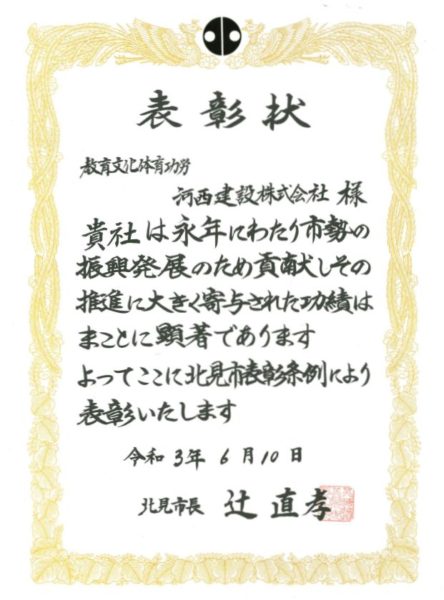 表彰状
教育文化体育功労
河西建設株式会社 様
貴社は永年にわたり市勢の
振興発展のため貢献しその
推進に大きく寄与された功績は
まことに顕著であります
よってここに北見市表彰条例により
表彰いたします
令和3年6月10日
北見市長 辻直孝